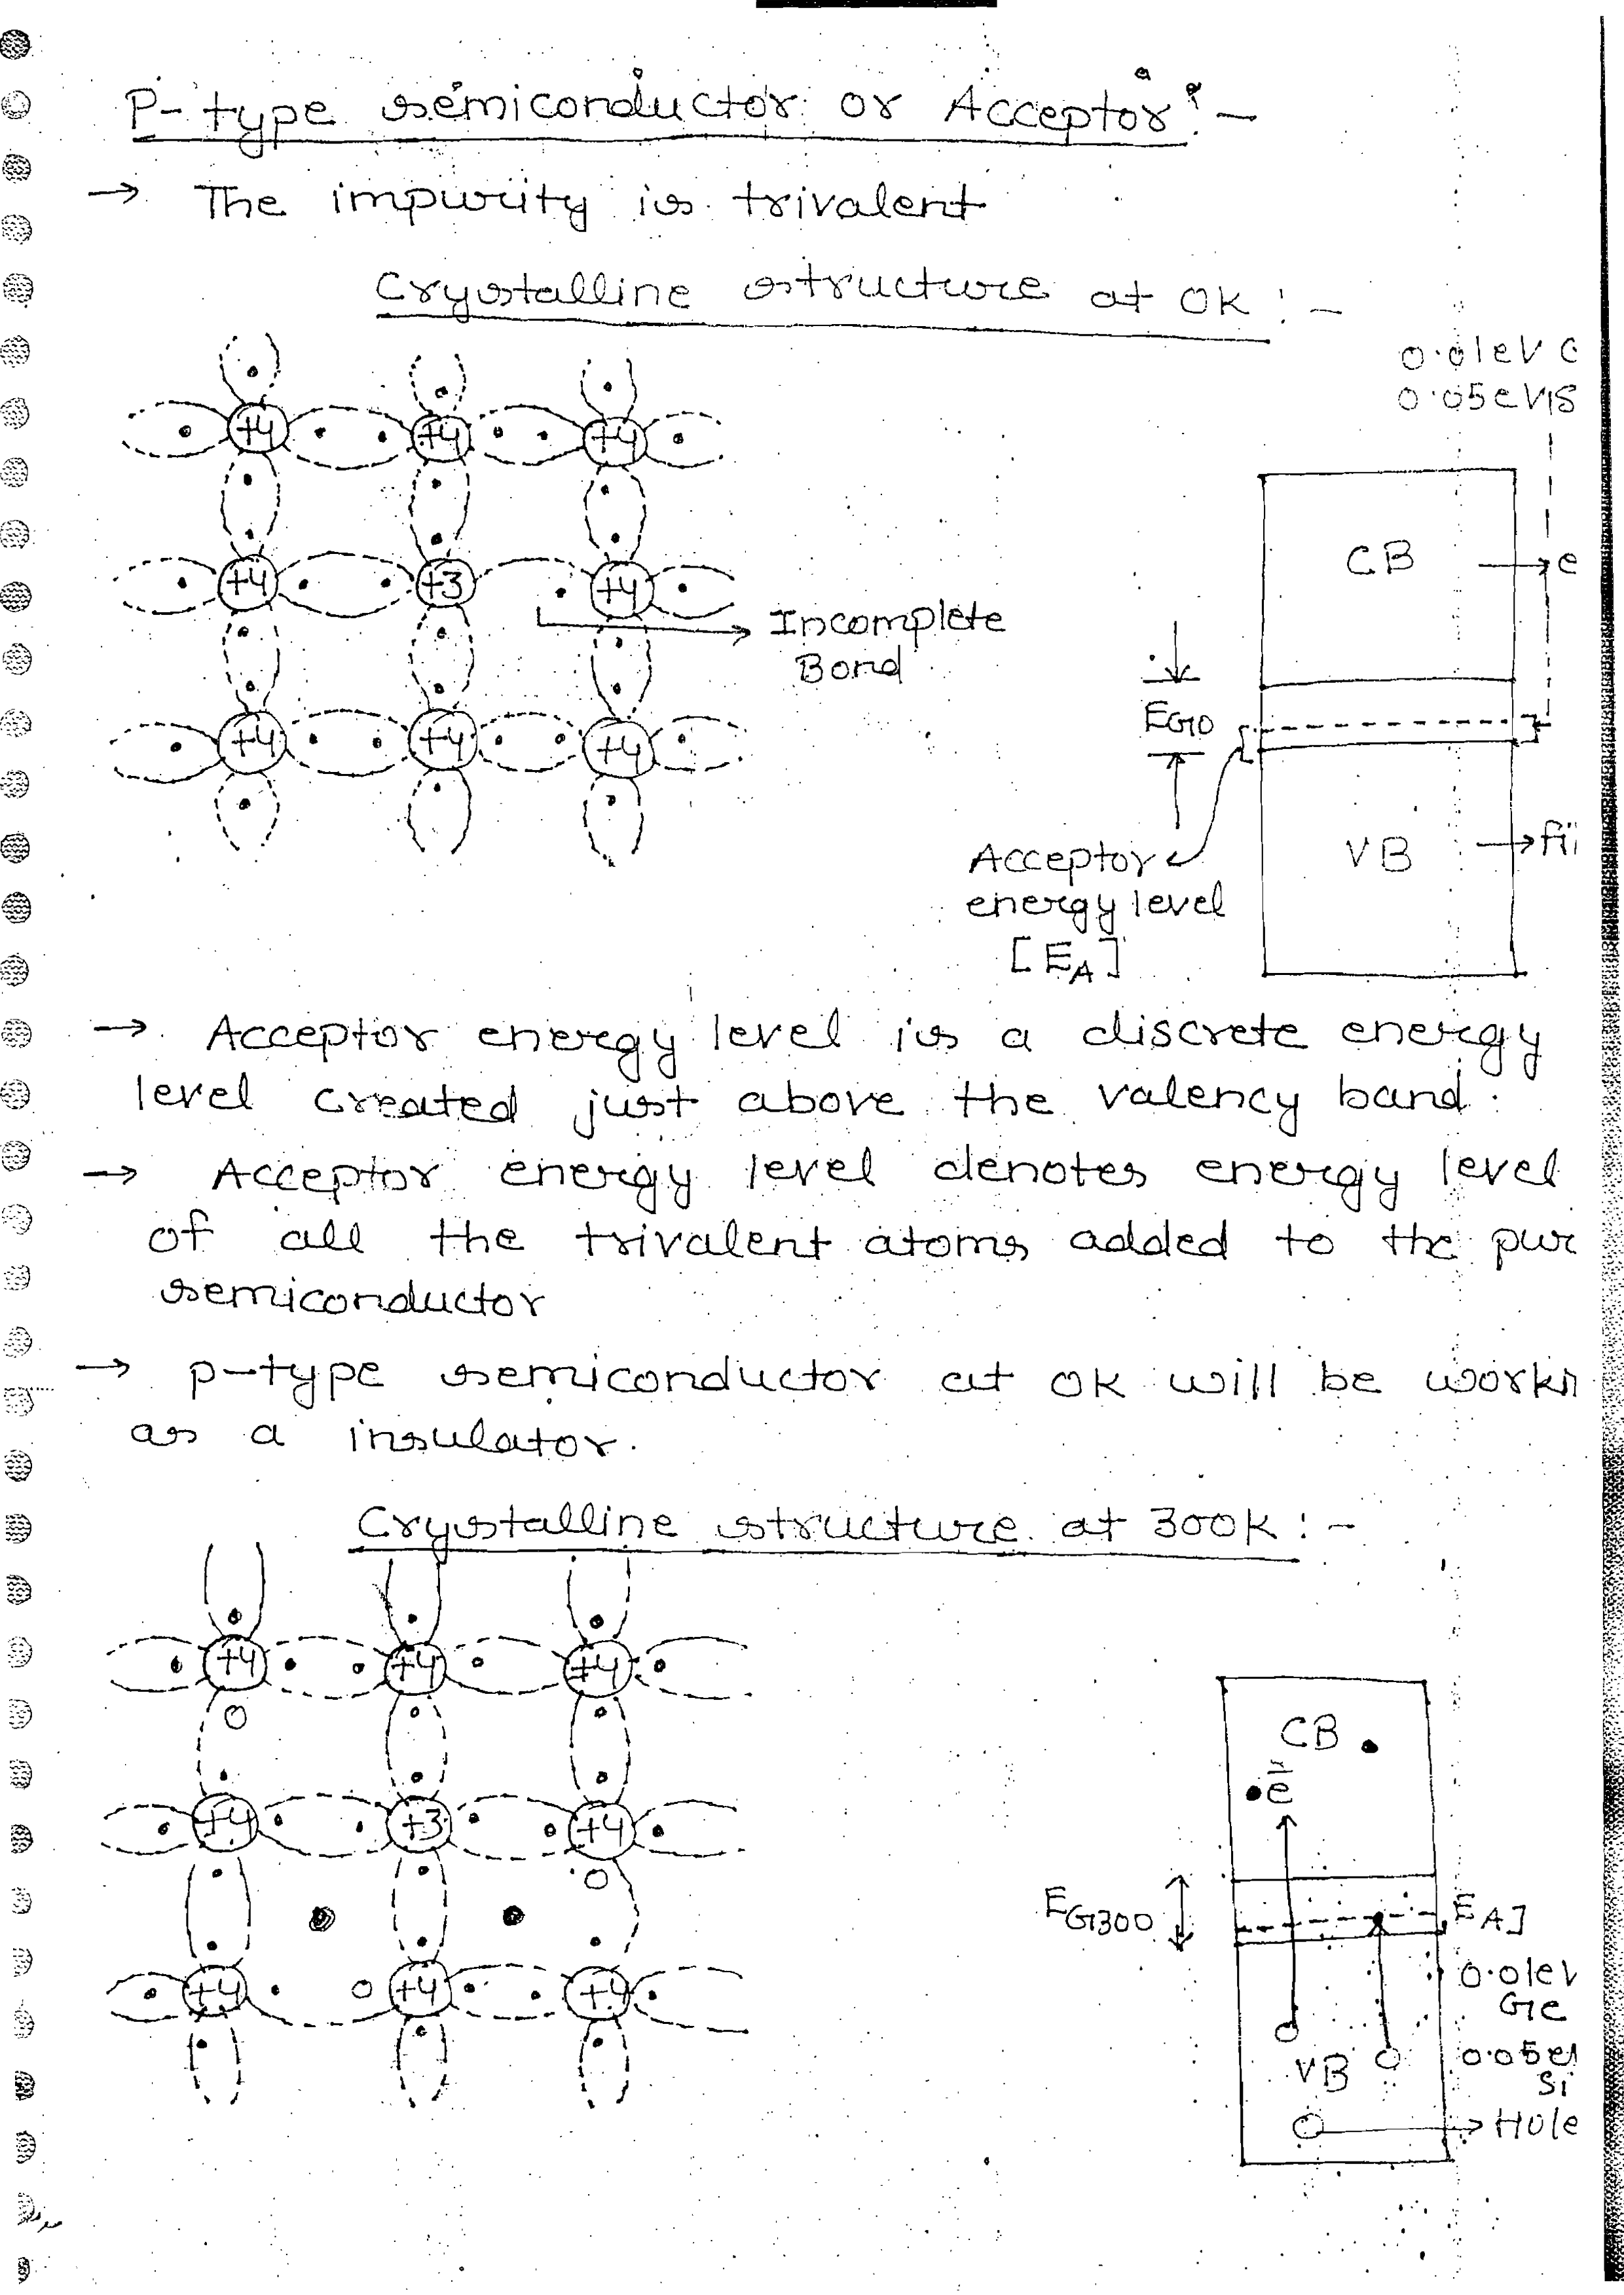 P-type semiconductor or Acceptor :-
→ The impurity is trivalent
Crystalline structure at 0K :-
0.01eV
0.05eV
+4 +4 +4
+4 +3 +4
+4 +4 +4
Incomplete
Bond
CB
EG0
VB
Acceptor
energy level
[EA]
→ Acceptor energy level is a discrete energy
level created just above the valency band.
→ Acceptor energy level denotes energy level
of all the trivalent atoms added to the pur
semiconductor
→ p-type semiconductor at 0K will be workin
as a insulator.
Crystalline structure at 300K :-
+4 +4 +4
+4 +3 +4
+4 +4 +4
CB
ē
EG300
EA]
0.01eV
Ge
VB
0.05eV
Si
→ Hole